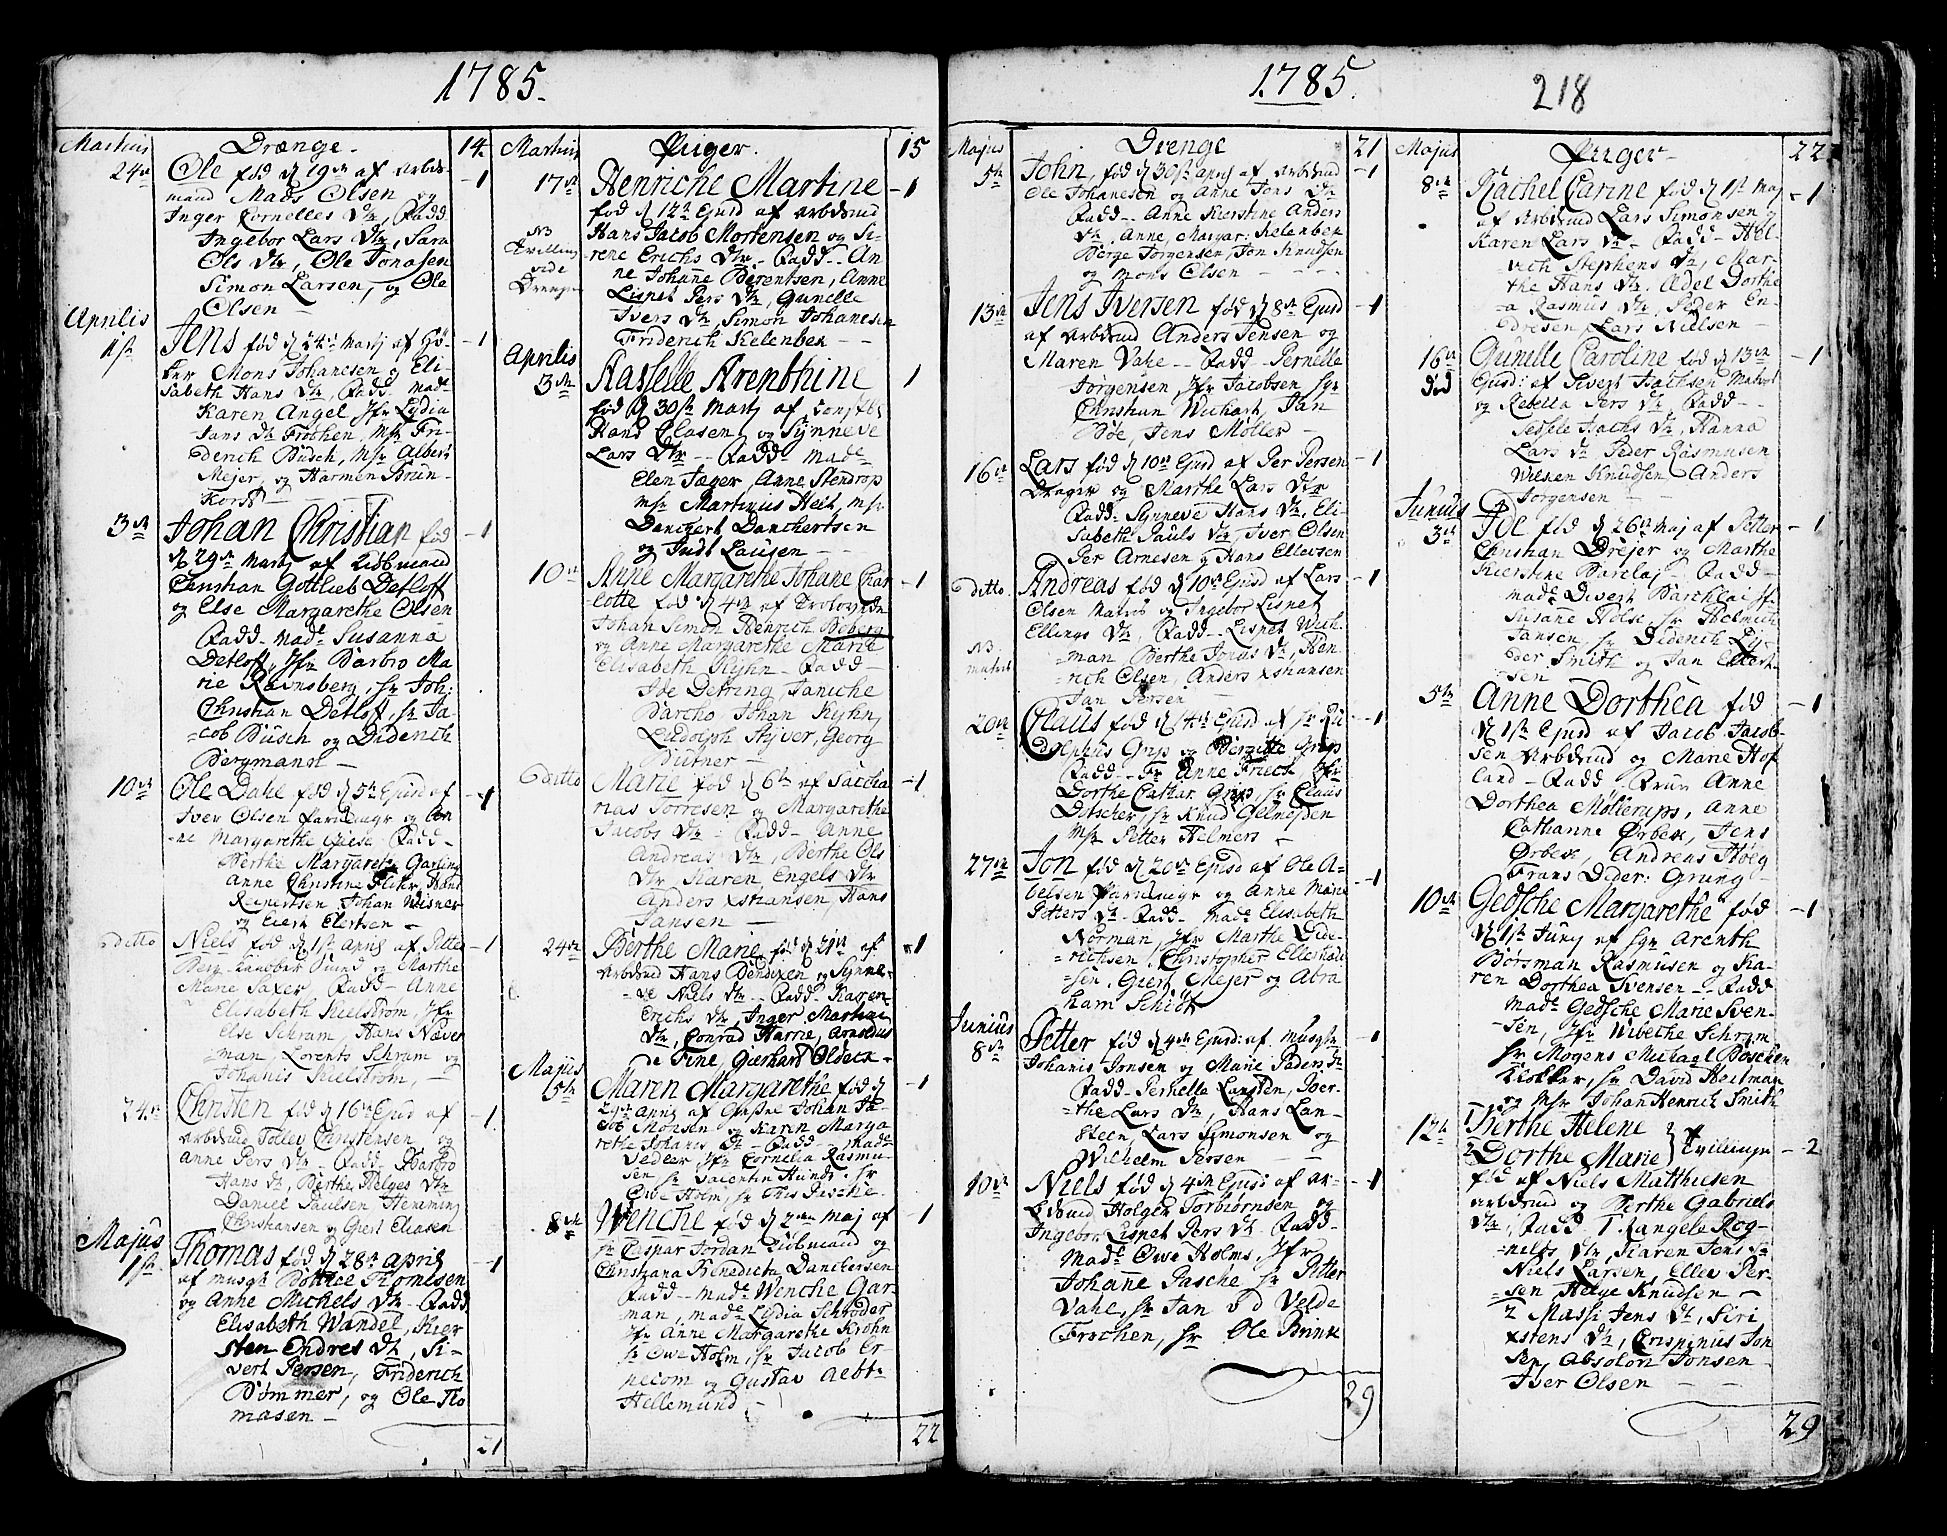 1785.
Martius
Drænge.
14.
24de
Ole fød d 19de af Arbds-
mand Mads Olsen og
-1
Inger Cornelles Dtr, Fadd
Ingebor Lars Dtr, Sara
Ols Dtr, Ole Jonasen
Simon Larsen, og Ole
Olsen -
Aprilis
1ste
Jens fød d 24de Martj af Hö-
-1
ker Mons Johanesen og Eli-
sabeth Hans Dtr, Fadd made
Karen Angel Jfr Lydia
Jans Dtr Frochen, Msr Fri-
derich Büsch, Msr Albert
Mejer, og Harmen Brün-
Korst
3de
Johan Christian fød
-1
d 29de Martj af Kiöbmand
Christian Gottlieb Detloff
og Else Margarethe Olsen
Fadd- made Susanna
Detloff, Jfr Barbro Ma
rie Ravnsberg, Hr Joh:
Christian Detloff, Hr Ja
=cob Büsch og Diderich
Bergmand -
10de
Ole Dahl fød d 5te Ejusd af
-1
Iver Olsen
ne Margarethe Fadd-
Berthe Margareta Garling
Anne Christine
Reinertsen, Johan Meisner
og Eiert Elertsen -
ditto
Niels fød d 1ste April af Petter
-1
Berg og Marthe
Marie Saxer, Fadd- Anne
Elisabeth Kielstrøm, Jfr
Else Schram Hans Naver
=man, Lorents Schram og
Johanis Kielstrøm, -
24de
Christen fød d 16de Ejusd af
-1
Arbdmd Tollev Christensen og
Anne Pers Dtr- Fadd- Barbro
Hans Dtr, Berthe Helges Dtr
Daniel Paulsen Hemming
Christiansen og Giert Eliasen
Majus
1ste
Thomas fød d 28de April
-1
af musqt Thomesen
og Anne Michels Dtr- Fadd
Elisabeth Wandel, Kier
sten Endres Dtr, Si-
vert Persen, Friderich
Bömmer, og Ole Tho
masen -
21
Martius
Piiger.
15
17de
Henriche Martine
-1
fød d 12te Ejusd af Arbdmd
NB
Tvilling
vide
Drenge
Hans Jacob Mortensen og Si-
rene Erichs Dtr- Fadd- An
ne Johane Berentsen, Anne
Lispet Pers Dtr, Gunelle
Ivers Dtr, Simon Johanesen
Friderich Kelenbek - -
Aprilis
3de
Aasselle Arenthine
1
fød d 30ste Martj af
Hans Clasen og Synneve
Lars Dtr -- Fadd- made
Elen Jæger, Anne Stendrop
Msr Martinus Heit, Msr
Danchert Danchertsen
og Judt Lausen -
10de
Anne Margarethe Johane Char
-1
lotte fød d 4de af
Johan Simon Henrich Boberg
og Anne Margarethe Marie
Elisabeth Kyhn - Fadd-
Ide Detring, Taniche
Barcho, Johan Kyhn,
Ludolph Styver, Georg
Bütner -
ditto
Marie fød d 6te af Sacha
-1
rias Torresen og Margarethe
Jacobs Dtr - Fadd- Anne
Andreas Dtr, Berthe Ols
Dtr Karen Engels Dtr
Anders Xstiansen, Hans
Jansen -
24de
Berthe Marie fød d 21de af
-1
Arbdmd Hans Bendixen og Synne-
=ve Niels Dtr -- Fadd- Karen
Erichs Dtr, Inger Martini
Dtr, Conrad Harrie, Arnoldus
de Fine, Gierhard Olsen -
Majus
5te
Maren Margarethe fød d
-1
29de April af Johan Ja-
cob Monsen og Karen Marga
rethe Johanis Dtr - Fadd- made
Vedeer, Jfr Cornelia Rasmu-
sen, Hr Valentin Hundt, Hr
Owe Holm, Hr This
8de
Wenche fød d 2den Maj af
-1
Hr Caspar Jordan Kiöbmand og
Christiana Benedicta Danchertsen
Fadd- made Wenche Gar-
man, made Lydia Schröder
Jfr Anne Margarethe Krohn
Hr Owe Holm, Hr Jacob Er
=pecom og Gustav Aebt-
Hellemund -
22
1785.
218
Majus
Drenge
21
5te
John, fød d 30ste April af Arbdmd
-1
Ole Johaneson og Anne Jons Dtr
Fadd-- Anne Kierstine Anders
Dtr, Anne, Margar: Kelenbek
Berge Jorgensen, Jon Knudsen
og Mons Olsen - - - -
13de
Jens Iversen fød d 8de Ejusd
-1
af Arbdmd Anders Jensen og
Maren Vahe -- Fadd- Pernelle
Jorgensen, Jfr Jacobsen Sgr
Christian Wichart, Jan
Böe, Jens Möller -
16de
Lars fød d 10de Ejusd af Per Persen
-1
Drager og Marthe Lars Dtr
Fadd- Synneve Hans Dtr, Eli-
sabeth Pauls Dtr, Iver Olsen
Per Arnesen og Hans Ellevsen
ditto
Andreas fød d 10de Ejusd af Lars
-1
Olsen Matros og Ingebor Lispet
Ellings Dtr, Fadd-- Lispet Wich-
NB
=man Berthe Jonas Dtr, Hen-
=rich Olsen, Anders Xstiansen
Jan Persen -
20de
Claus fød d 14de Ejusd af Hr Ru
-1
dolphus Grip og Bergitte Grip
Fadd-- Fr Anne Frieck Jfr
Dorthe Cathar Grip, Hr Claus
Dotscher, Hr Knud Gelmeyden
Msr Petter Helmers -
27de
Jon fød d 20de Ejusd af Ole A-
-1
belsen og Anne Marie
Potters Dtr- Fadd- made Elisabeth
Norman, Jfr Marthe Dide-
=richsen, Christopher Ellerhus
=sen, Giert Mejer og Abra
ham Schidt
Junius
8de
Petter fød d 4de Ejusd: af musqtr
-1
Johanis Jonsen og Marie Peders Dtr
Fadd- Pernella Langsten, Ber-
=the Lars Dtr, Hans Lan-
steen, Lars Simonsen og
Wilhelm Persen -
10de
Niels fød d 4de Ejusd: af Ar-
-1
bdmd Holger Torbiörnsen og
Ingebor Lispet Pers Dtr- Fadd-
made Owe Holms, Jfr
Johane Pasche, Hr Petter
Vahe, Hr Jan v d Velde
Frochen, Hr Ole Brink
29
Majus
Piiger-
22
8de
Rachel Carine fød d 1ste Maj
-1
af Arbdmd Lars Simonsen og
Karen Lars Dtr - Fadd- Hel-
vich Stephens Dtr, Mar-
the Hans Dtr, Adel Dorthe
-a Rasmus Dtr, Peder En-
dresen, Lars Nielsen -
16de
död
Gunelle Caroline fød d 13de
-1
Ejusd: af Sivert Isachsen Matrot
og Rebecca Pers Dtr, Fadd--
Sessele Isachs Dtr, Hanna
Lars Dtr Peder Rasmusen
Nelsen Knudsen Anders
Jorgensen -
Junius
3de
Ide fød d 26de Maj af Petter
-1
Christian Drejer og Marthe
Kierstine Barclaj - Fadd-
made Divert Barchlai Jfr
Susane Holse, Hr Helmich
Jansen, Hr Diderich Ly-
der Smith og Jan Ellert-
sen
5te
Anne Dorthea fød
-1
d 1ste Ejusd af Jacob Jacob-
sen Arbdmd og Marie Hof
land - Fadd- Anne
Dorthea Mollerups, Anne
Cathanne Ørbek, Jens
Ørbek, Andreas Høeg
Frans Dider: Grung -
10de
Gedsche Margarethe fød
-1
d 1ste Junj af Sgr Arenth
Börsman Rasmusen og Ka-
ren Dorthea Svensen -- Fadd
made Gedsche Marie Sven-
sen, Jfr Wibethe Schram
Hr Mogens Michael Döschen
Klokker, Hr David Heitman
og Msr Johan Henrich Smith
12te
1 Berthe Helene
2 Dorthe Marie
Tvillinger
-2
fød af Niels Matthiesen
Arbdmd og Berthe Gabriels
Dtr, Fadd 1. Rangela Rog-
nelds Dtr, Karen Jens Dtr
Niels Larsen, Ellev Per-
sen, Helge Knudsen -
2 Massi Jens Dtr, Siri
Xstens Dtr, Crispinus Jon
sen, Absolon Jonsen -
Iver Olsen -
29